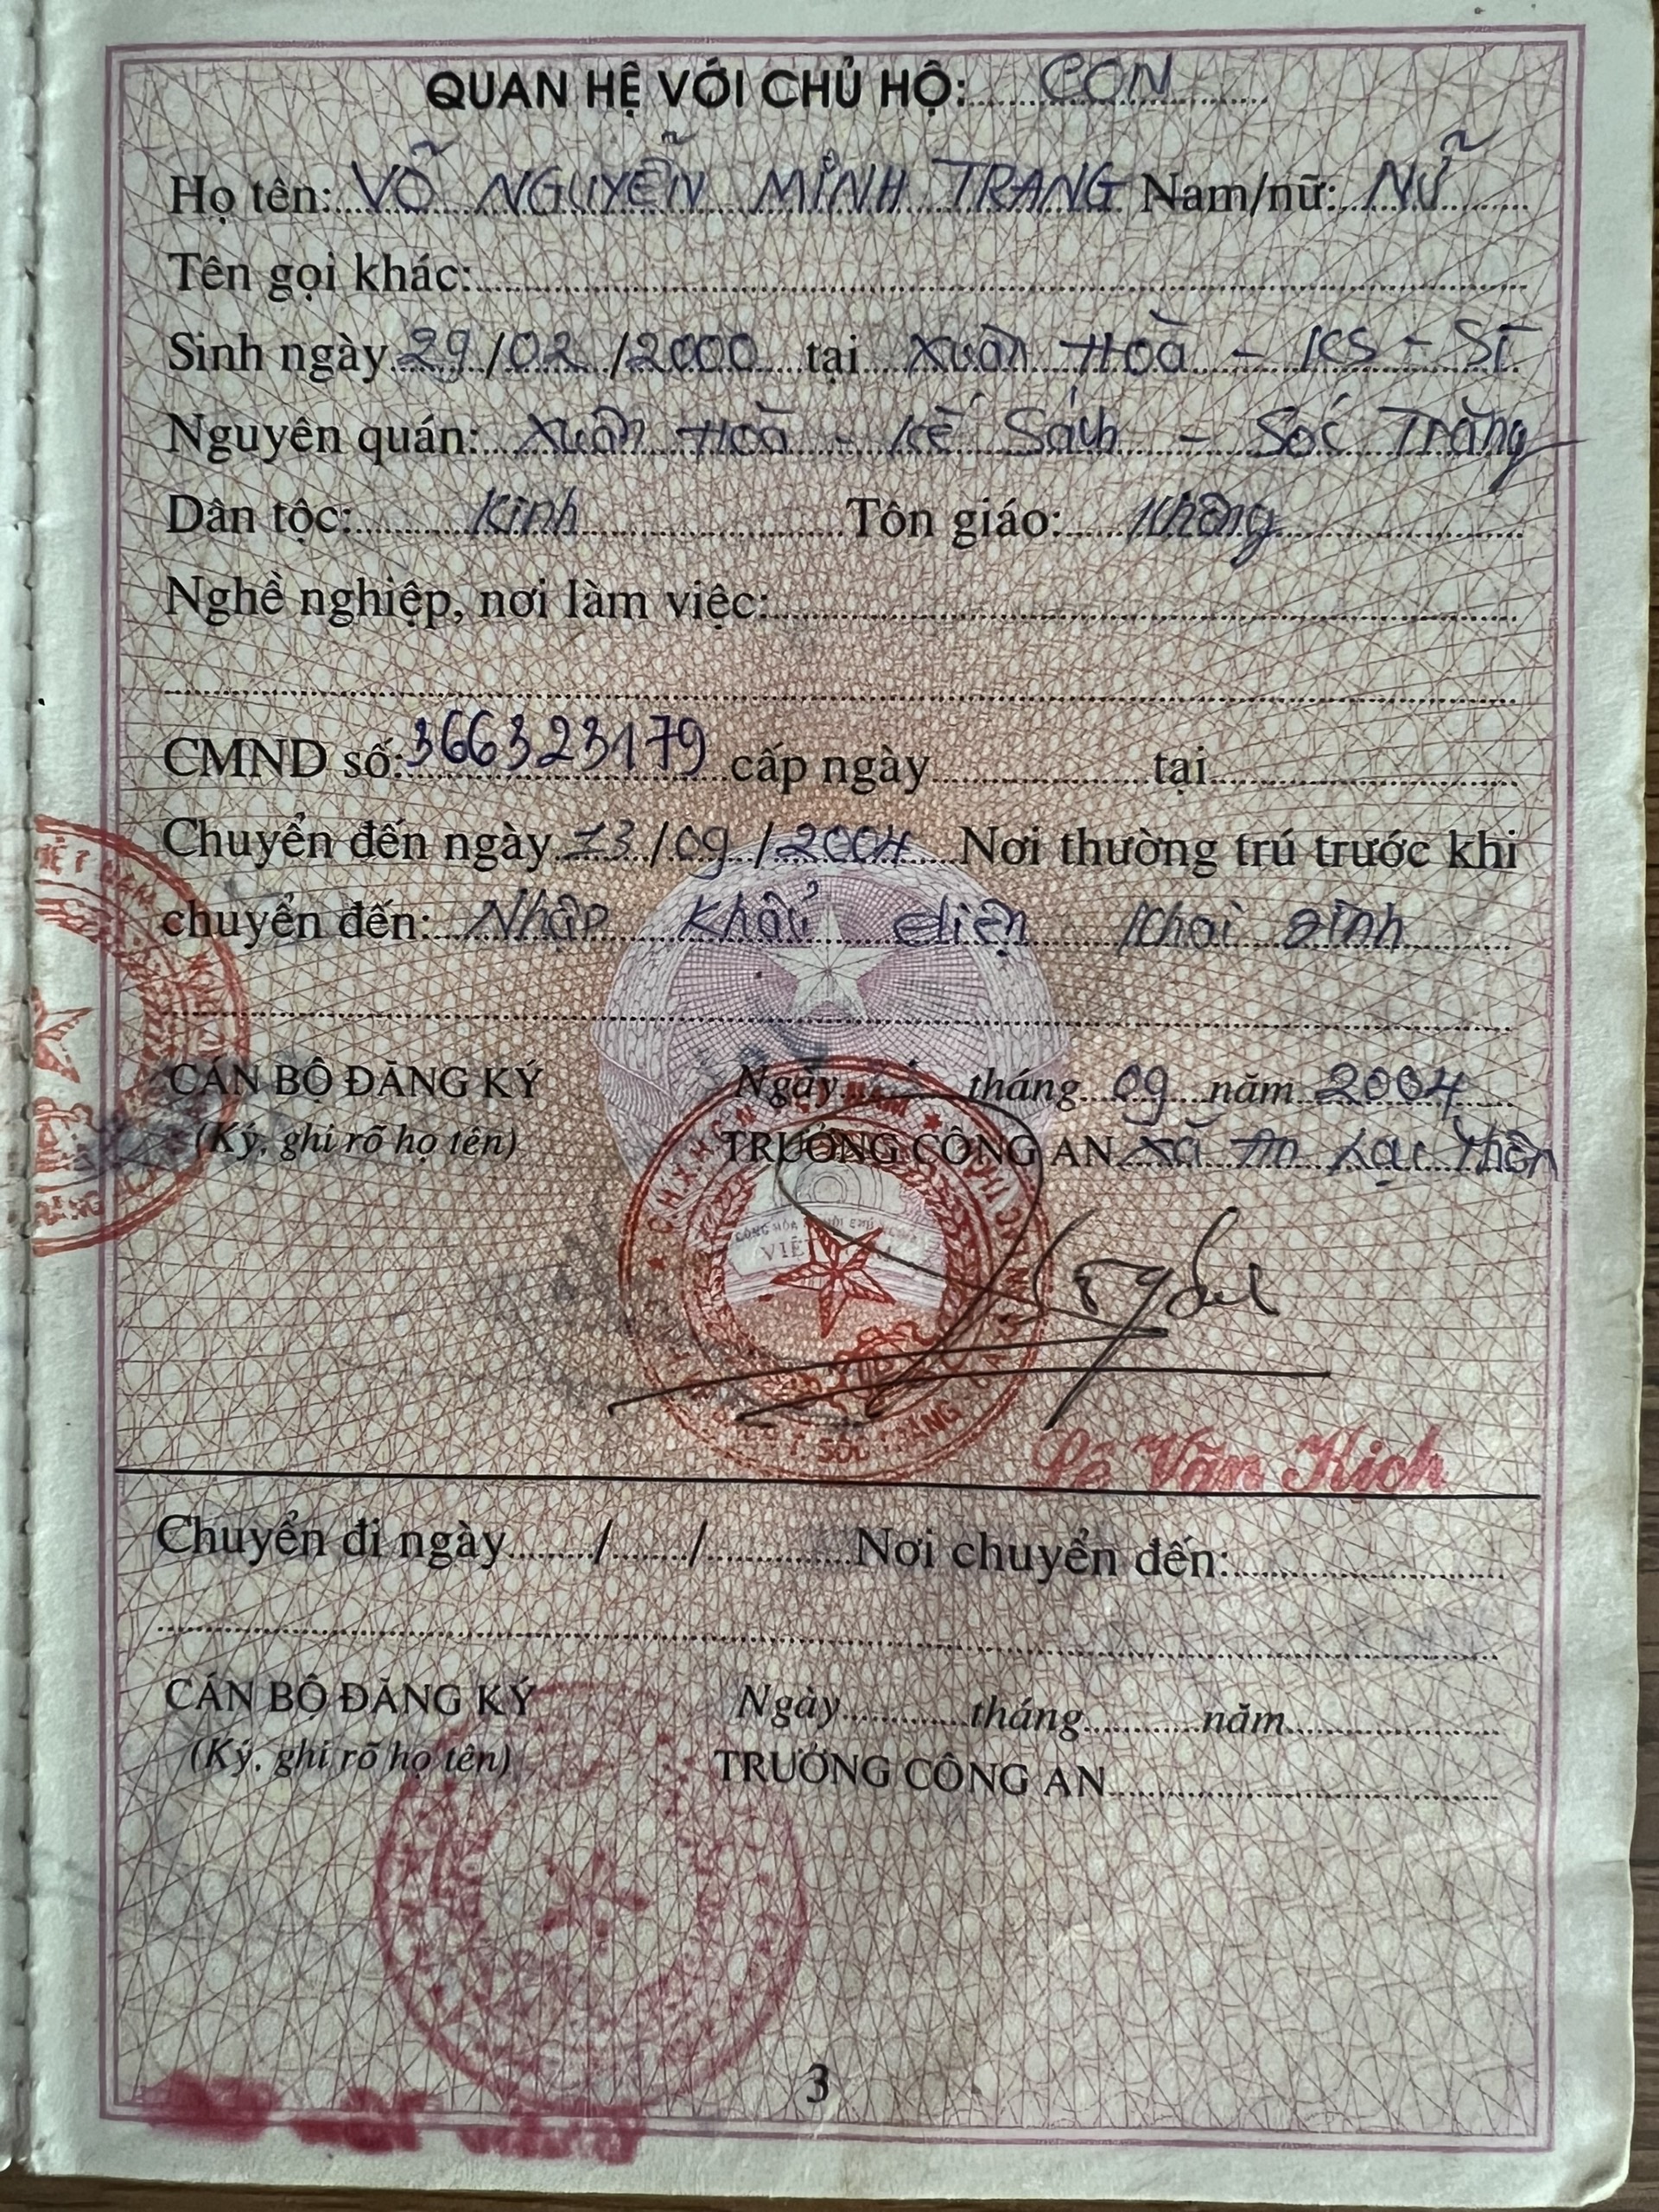 QUAN HỆ VỚI CHỦ HỘ: CON
Họ tên: VÕ NGUYỄN MINH TRANG Nam/nữ: NỮ
Tên gọi khác:
Sinh ngày 29/02/2000 tại Xuân Hoà - KS - ST
Nguyên quán: Xuân Hoà - Kế Sách - Sóc Trăng
Dân tộc: Kinh Tôn giáo: Không
Nghề nghiệp, nơi làm việc:
CMND số: 366323179 cấp ngày tại
Chuyển đến ngày 13/09/2004 Nơi thường trú trước khi
chuyển đến: Nhập khẩu diện khai sinh
CÁN BỘ ĐĂNG KÝ Ngày tháng 09 năm 2004
(Ký, ghi rõ họ tên) TRƯỞNG CÔNG AN xã An Lạc Thôn
VIỆ
T. SÓC TRĂNG
Lê Văn Kich
Chuyển đi ngày / / Nơi chuyển đến:
CÁN BỘ ĐĂNG KÝ Ngày tháng năm
(Ký, ghi rõ họ tên) TRƯỞNG CÔNG AN
3